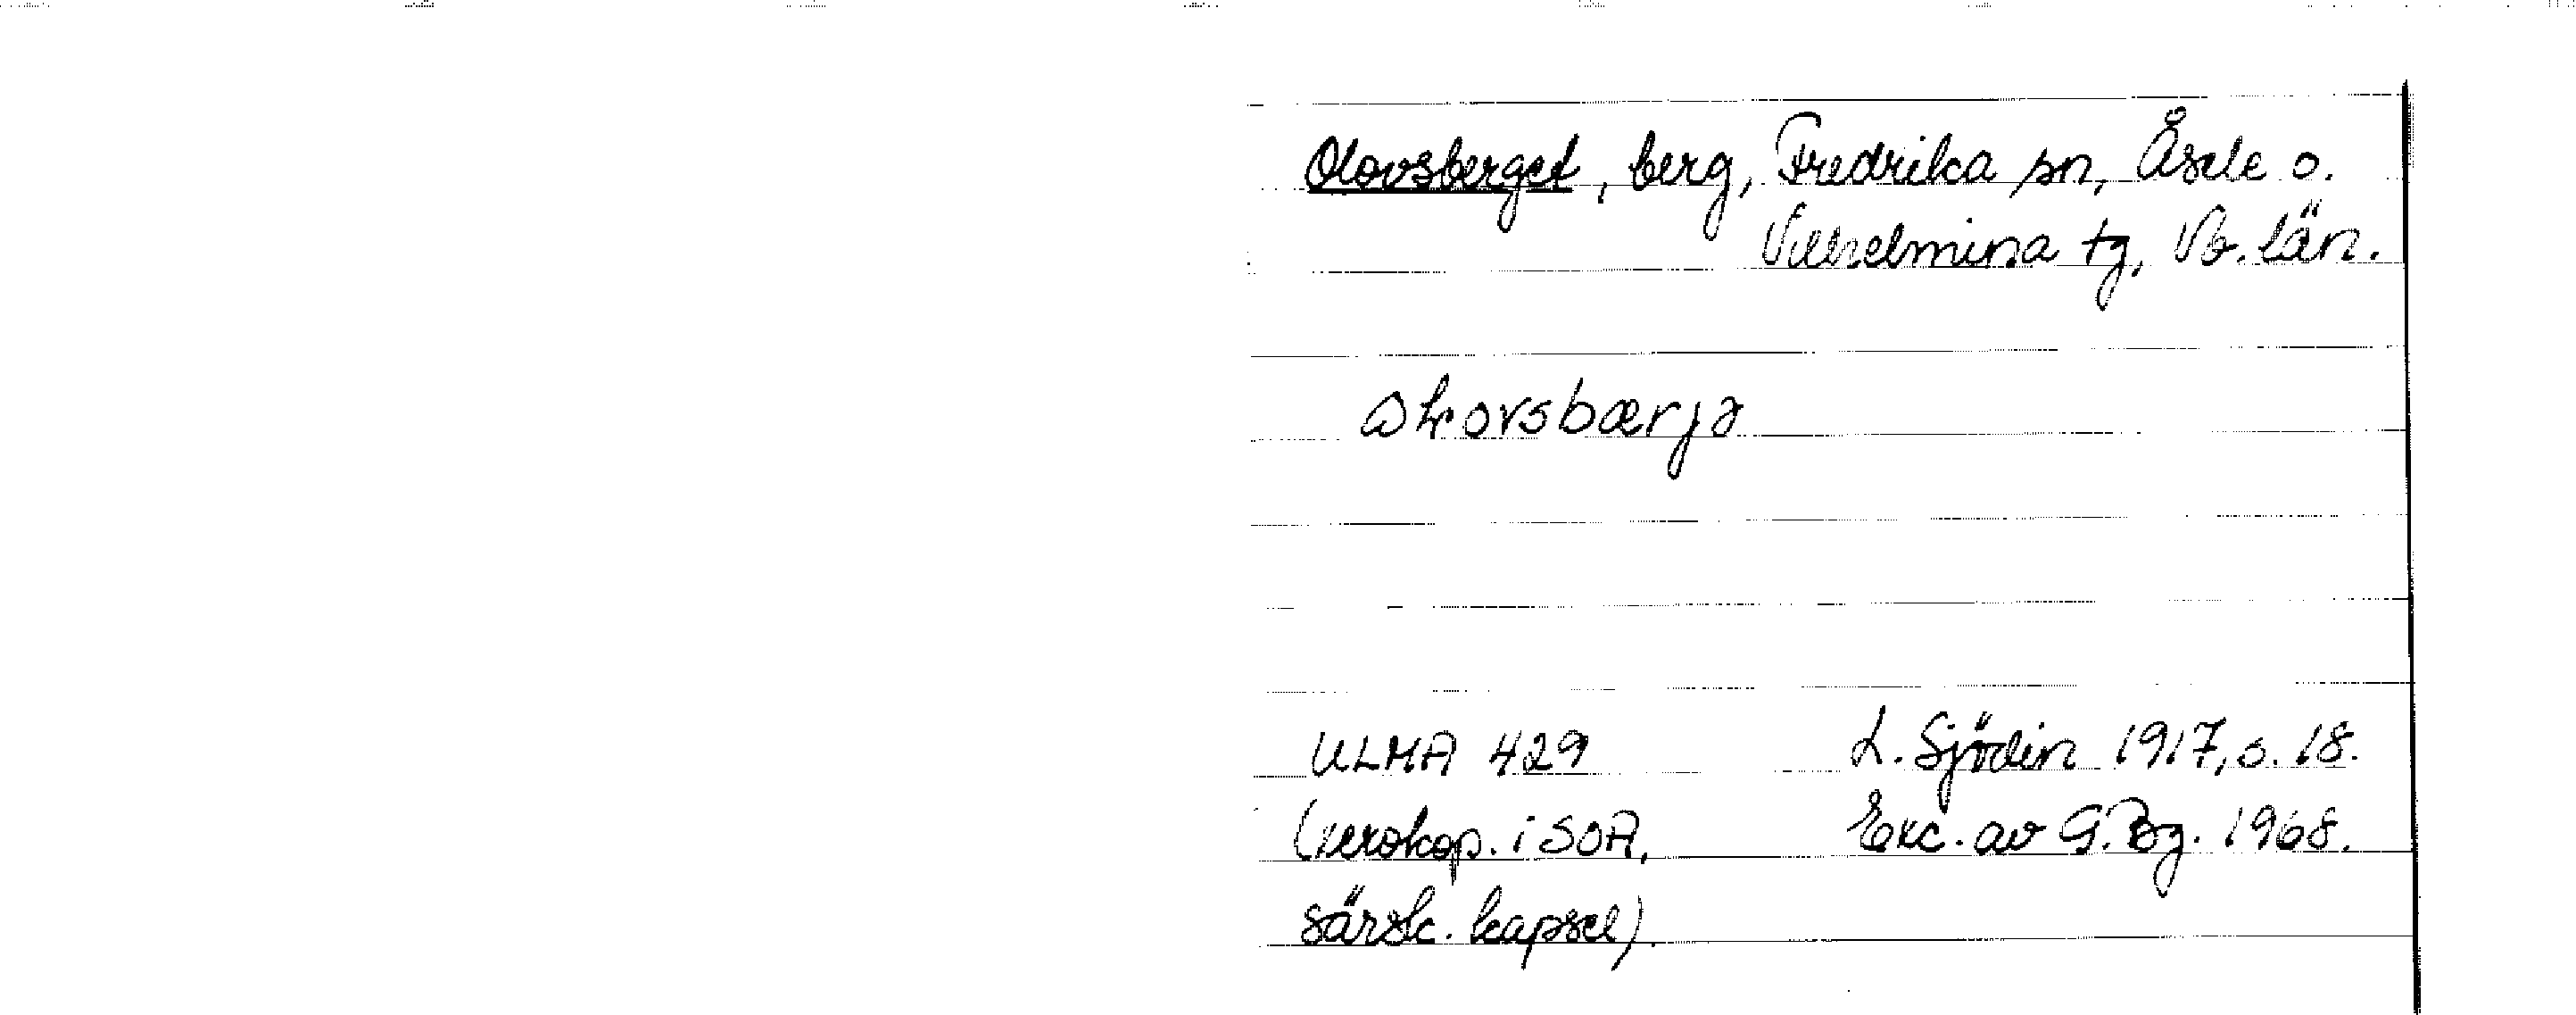 Olovsberget, berg, Fredrika sn, Åsele o.
Vilhelmina tg, Vb. län.
ULMA 429 L. Sjödin 1917, s. 18.
(xerokop. i SOA, Exc. av G. Bg. 1968.
särsk. kapsel).